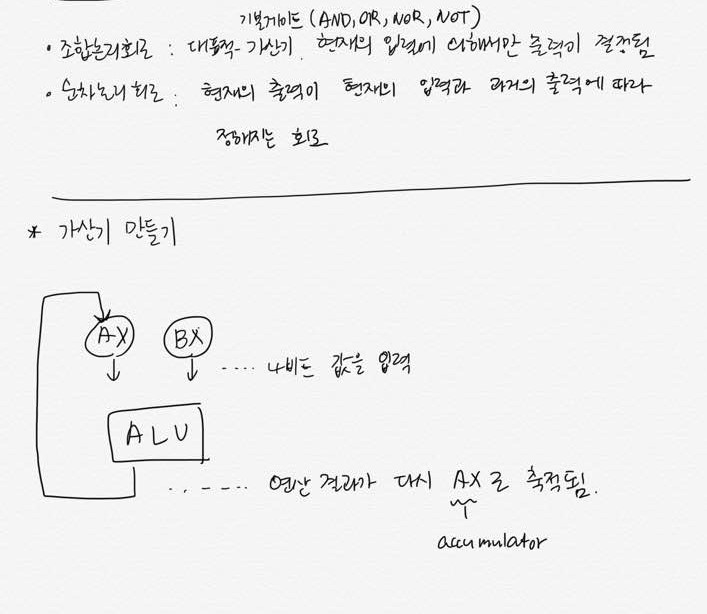 기본게이트 (AND, OR, NOR, NOT)
• 조합논리회로 : 대표적-가산기. 현재의 입력에 의해서만 출력이 결정됨
• 순차논리회로 : 현재의 출력이 현재의 입력과 과거의 출력에 따라
정해지는 회로
* 가산기 만들기
AX BX
.... 4비트 값을 입력
ALU
..---- 연산 결과가 다시 AX로 축적됨.
accumulator